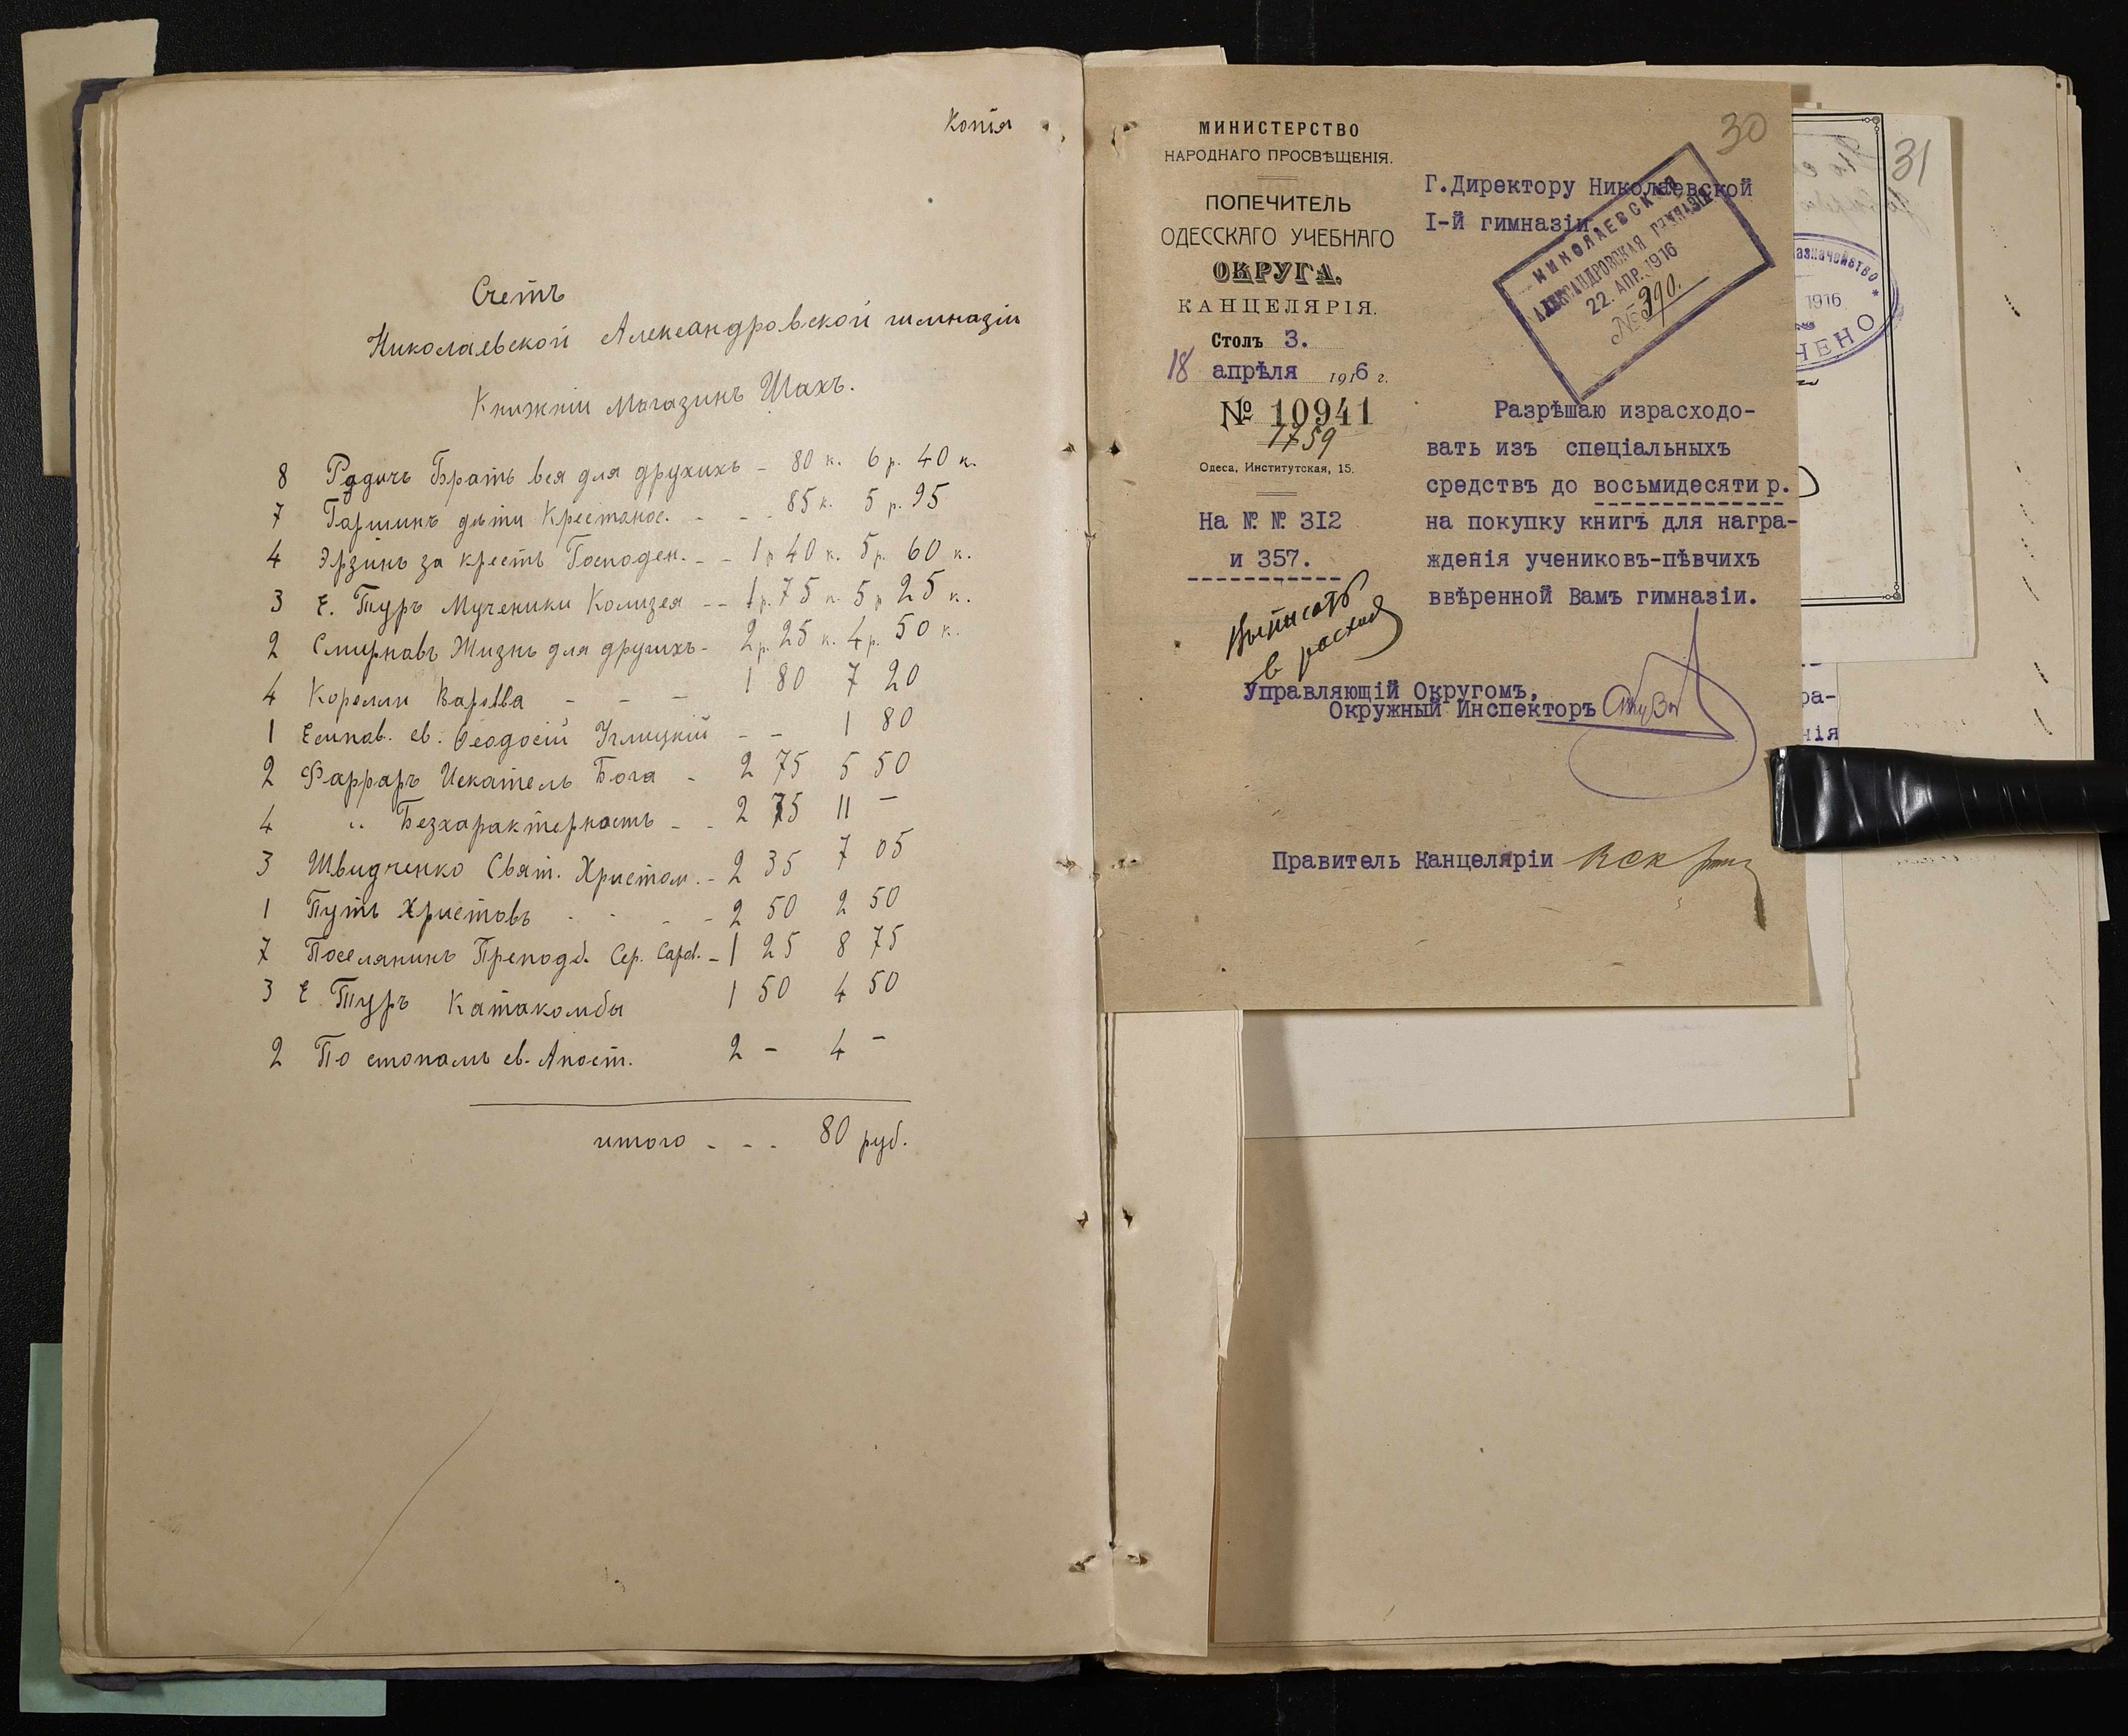 Копія
Счетъ
Николаевской Александровской гимназіи
Книжній Магазинъ Шахъ.
8 Радичъ Братъ вся для друхихъ - 80 к. 6 р. 40 к.
7 Гаршинъ дѣти Крестонос. - - - 85 к. 5 р. 95
4 Эрзинъ за крестъ Господен. - - 1 р 40 к. 5 р. 60 к.
3 Е. Туръ Мученики Колизея - - 1 р. 75 к. 5 р 25 к.
2 Смирновъ Жизнь для другихъ - 2 р. 25 к. 4 р. 50 к.
4 Корелли Варавва - - - 1 80 7 20
1 св. Ѳеодосій Углицкій - - 1 80
2 Фарраръ Искатель Бога - 2 75 5 50
4 " Безхарактерность - - 2 75 11 -
3 Швидченко Свят. Христом. - 2 35 7 05
1 Путь Христовъ - - - - 2 50 2 50
7 Поселянинъ Преподб. Сер. Саров. - 1 25 8 75
3 Е Туръ Катакомбы 1 50 4 50
2 По стопамъ св. Апост. 2 - 4 -
итого - - - 80 руб.
30
МИНИСТЕРСТВО
НАРОДНАГО ПРОСВѢЩЕНІЯ.
ПОПЕЧИТЕЛЬ
ОДЕССКАГО УЧЕБНАГО
ОКРУГА.
КАНЦЕЛЯРІЯ.
Столъ 3.
18 апрѣля 1916 г.
№ 10941
1759
Одеса, Институтская, 15.
На № № 312
и 357.
Выписать
в расход
Г.Директору Николаевской
I-й гимназіи.
НИКОЛАЕВСКАЯ
АЛЕКСАНДРОВСКАЯ ГИМНАЗІЯ
22. АПР. 1916
№ 390.
Разрѣшаю израсходо-
вать изъ спеціальныхъ
средствъ до восьмидесяти р.
на покупку книгъ для награ-
жденія учениковъ-пѣвчихъ
ввѣренной Вамъ гимназіи.
Управляющій Округомъ,
Окружный Инспекторъ
Правитель Канцеляріи
31
1916
ра-
нія